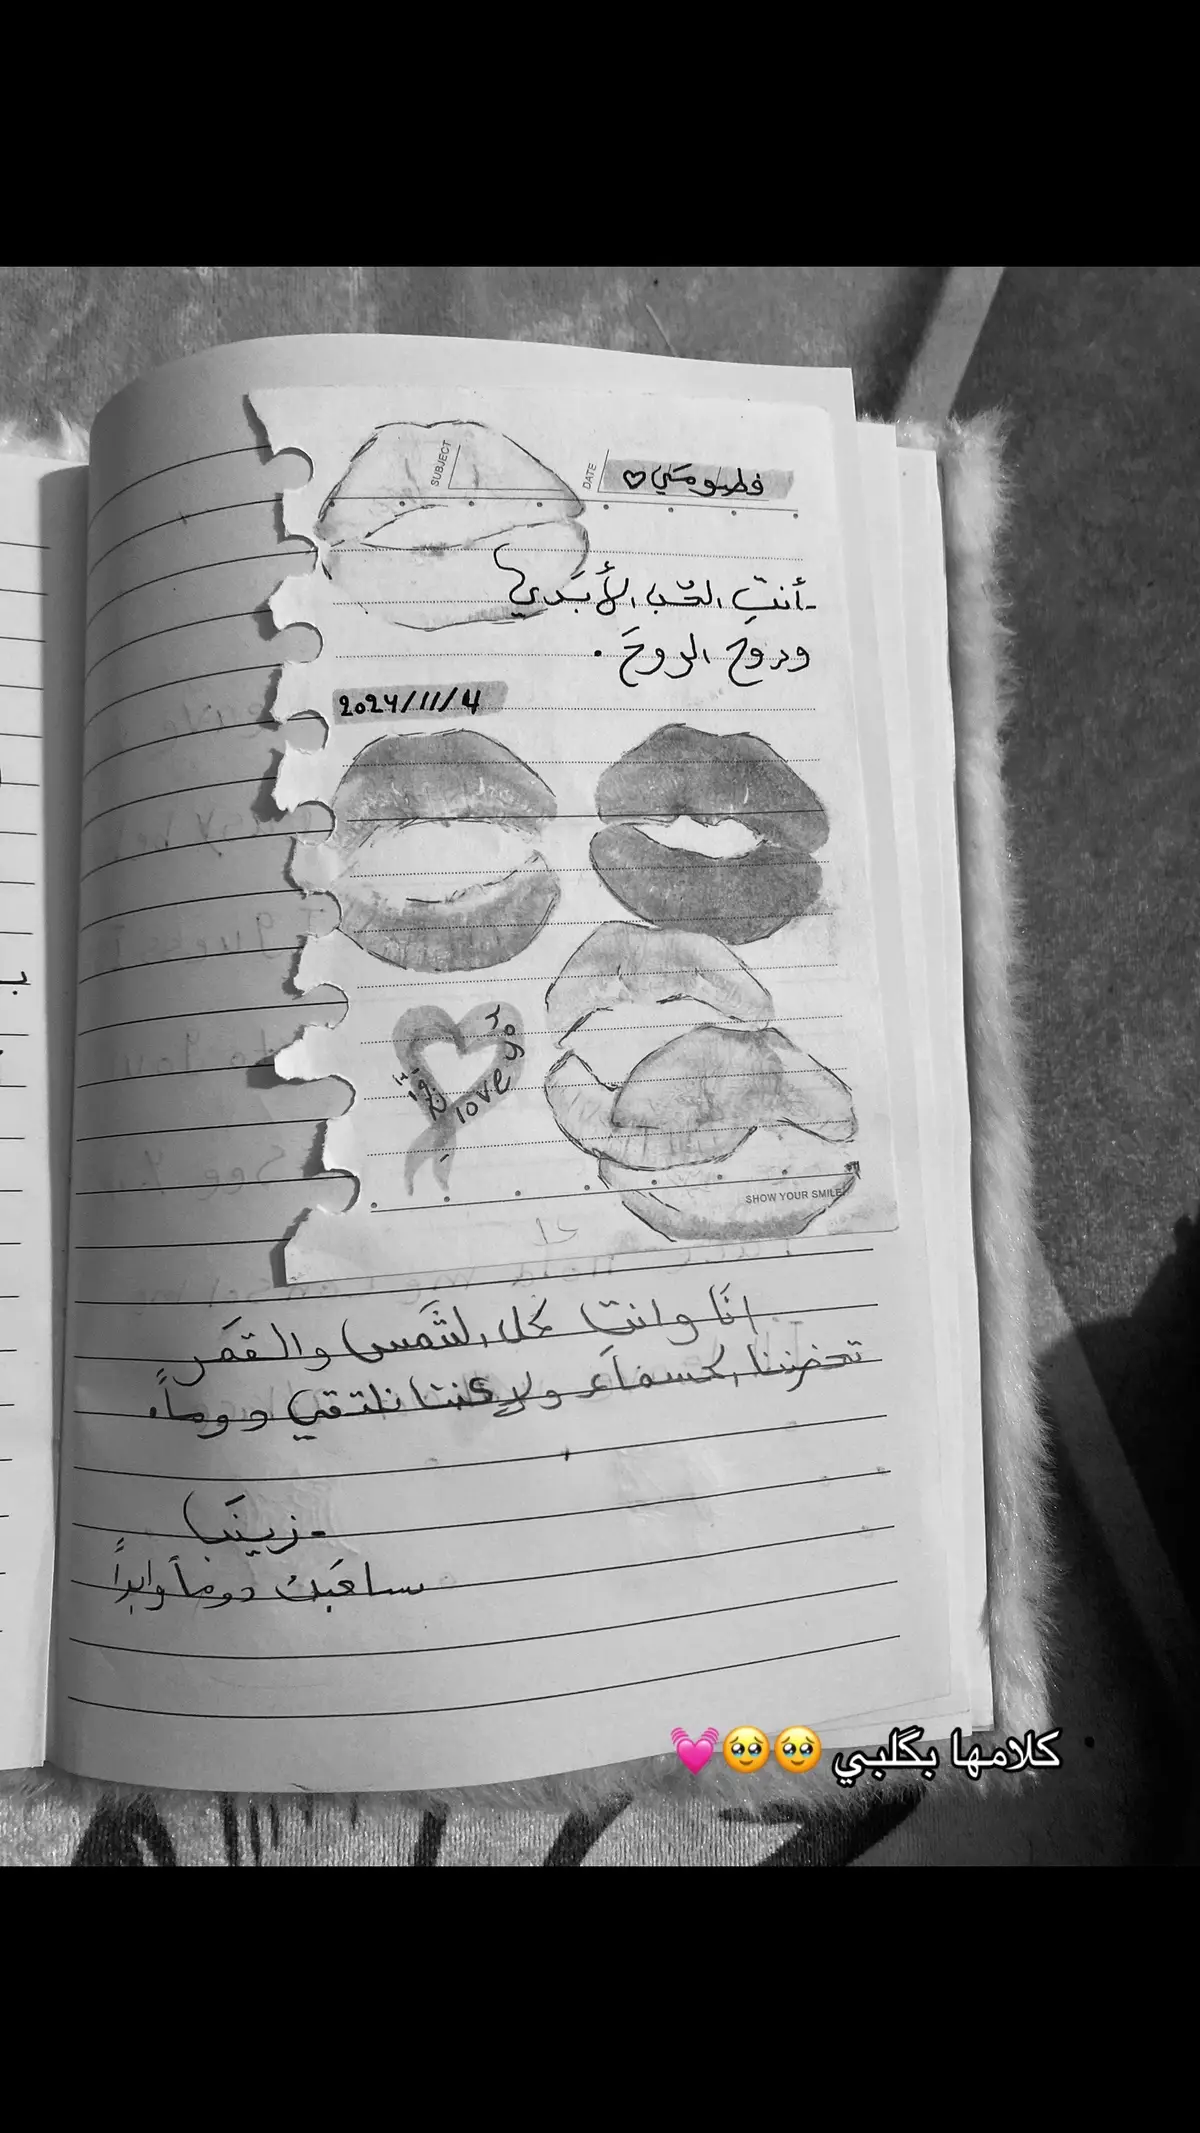 SUBJECT
DATE
فطومتي ♡
-أنتِ الحُب الأَبَدي
وروحَ الروحَ .
2024/11/4
love you
SHOW YOUR SMILE!
انَا وانتِ كل الشَمس والقمَر
تحضننا السماء ولاكننا نلتقي دوماً.
-زينَب
ساحَبك دوماً وابداً
كلامها بگلبي 🥹🥹💓